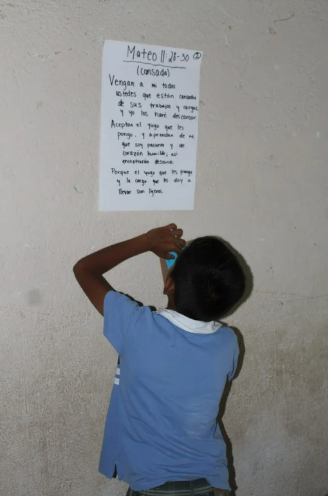 Mateo 11 28-30 ②
(cansada)
Vengan a mi todos
ustedes que están cansados
de sus trabajos y cargas
y yo los haré descansar
Acepten el yugo que les
pongo, y aprendan de mi
que soy paciente y de
corazón humilde, así
encontrarán descanso.
Porque el yugo que les pongo
y la carga que les doy a
llevar son ligeros